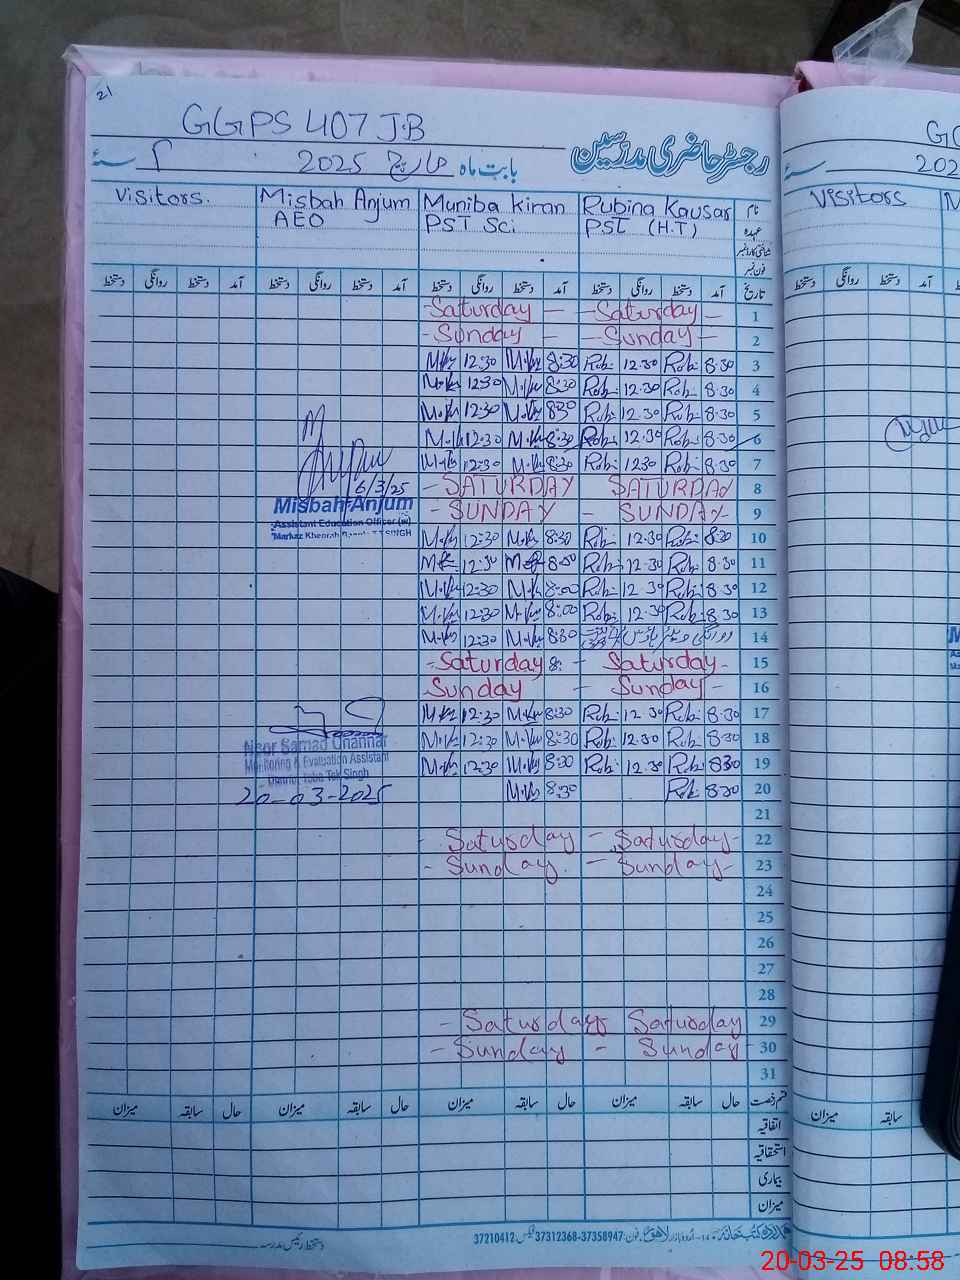 21
GGPS 407 J.B
رجسٹر حاضری مدرسین
بابت ماہ مارچ 2025 سنہ ء
Visitors. Misbah Anjum Muniba Kiran Rubina Kausar نام
AEO PST Sci PST (H.T) عہدہ
شناختی کارڈ نمبر
فون نمبر
دستخط روانگی دستخط آمد دستخط روانگی دستخط آمد دستخط روانگی دستخط آمد دستخط روانگی دستخط آمد تاریخ
- Saturday - - Saturday - 1
- Sunday - - Sunday - 2
12:30 8:30 Rob: 12.30 Rob: 8.30 3
12:30 8:30 Rob: 12.30 Rob: 8.30 4
12:30 8:30 Rob: 12.30 Rob: 8.30 5
12:30 8:30 Rob: 12.30 Rob: 8.30 6
12:30 8:30 Rob: 1230 Rob: 8.30 7
6/3/25
- SATURDAY SATURDAY 8
Misbah Anjum
- SUNDAY - SUNDAY - 9
Assistant Education Officer (w)
12:30 8:30 Rob: 12.30 Rob: 8.30 10
12:30 Rob: 12.30 Rob: 8.30 11
12:30 8:00 Rob: 12.30 Rob: 8.30 12
12:30 8:00 Rob: 12.30 Rob: 8.30 13
12:30 8:30 14
- Saturday 8: - Saturday - 15
Sunday - Sunday - 16
12:30 8:30 Rob: 12.30 Rob: 8.30 17
12:30 8:30 Rob: 12.30 Rob: 8.30 18
Noor Samad Channar
Monitoring & Evaluation Assistant
12:30 8:30 Rob: 12.30 Rob: 830 19
District Toba Tek Singh
20-03-2025
8:30 Rob: 8.30 20
21
- Saturday - Saturday - 22
- Sunday. - Sunday - 23
24
25
26
27
28
- Saturday Saturday 29
- Sunday - Sunday - 30
31
میزان سابقہ حال میزان سابقہ حال میزان سابقہ حال میزان سابقہ حال قسم رخصت
اتفاقیہ
استحقاقیہ
بیماری
میزان
دستخط رئیس مدرسہ
ہمدرد کتب خانہ اردو بازار لاہور فون: 37358947-37312368 فیکس: 37210412
سنہ ء 202
Visitors M
دستخط روانگی دستخط آمد
میزان سابقہ
20-03-25 08:58